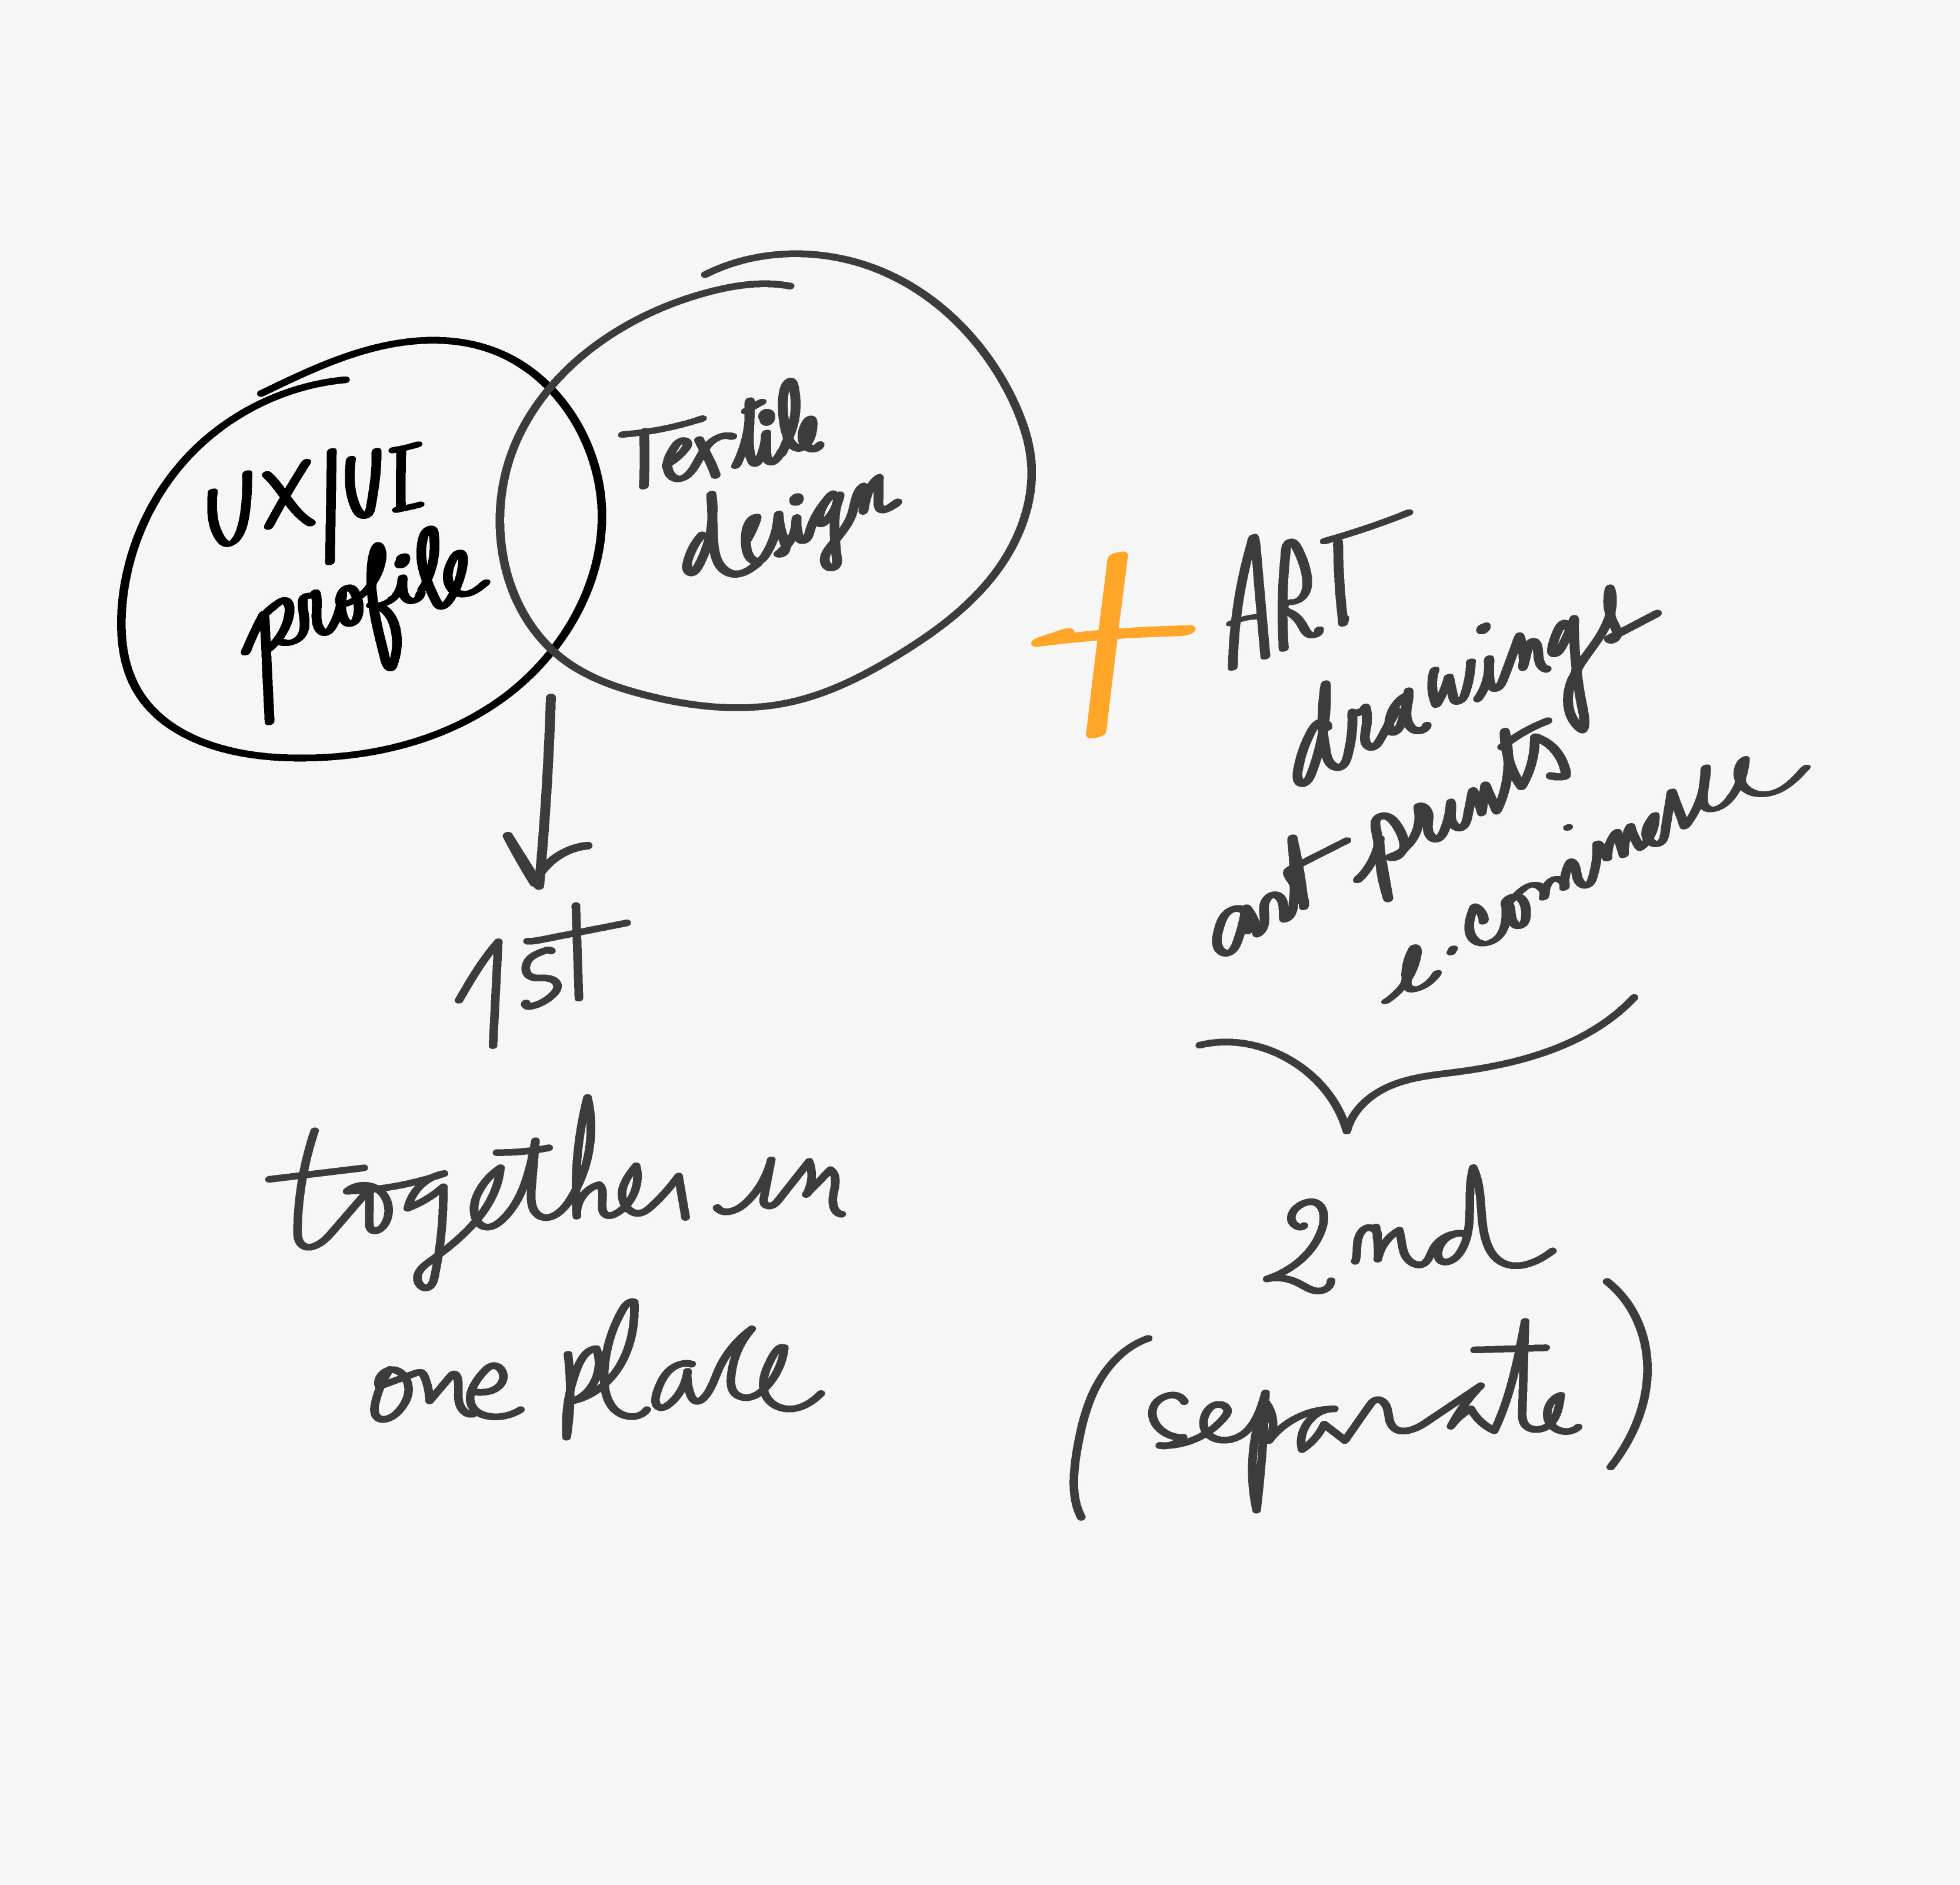 UX/UI
profile
Textile
design
+ ART
drawings
art prints
e-commerce
1st
together in
one place
2nd
(separate)